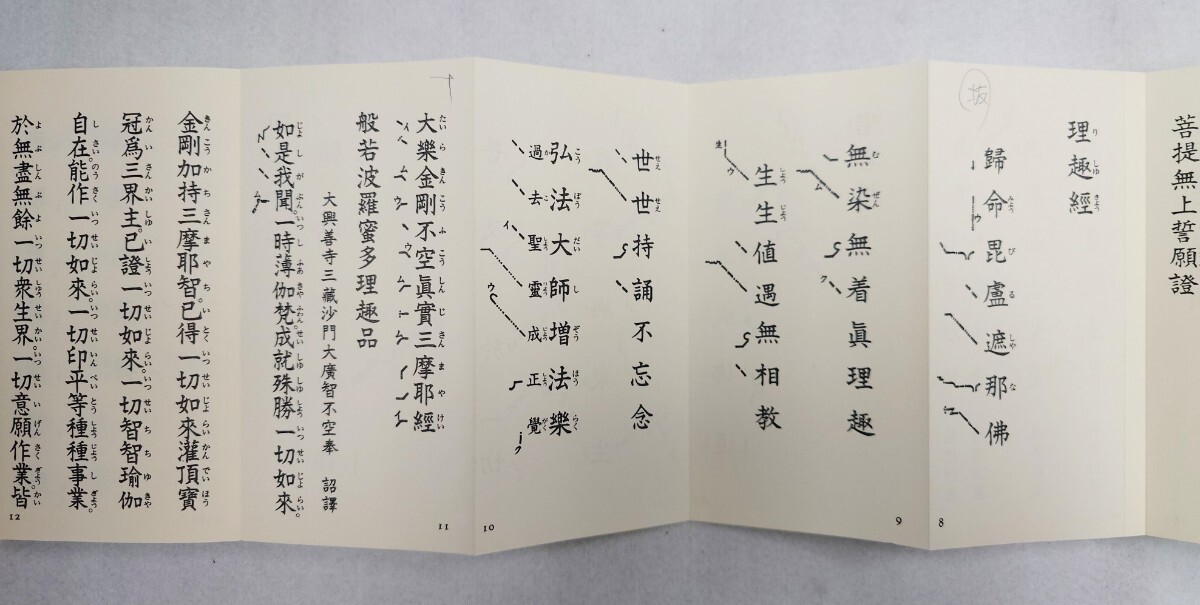 菩提無上誓願證
理趣經
歸命毘盧遮那佛
8
無染無着眞理趣
生生值遇無相教
9
世世持誦不忘念
弘法大師增法樂
過去聖靈成正覺
10
大樂金剛不空眞實三摩耶經
般若波羅蜜多理趣品
大興善寺三藏沙門大廣智不空奉 詔譯
如是我聞。一時薄伽梵。成就殊勝一切如來。
11
金剛加持三摩耶智。已得一切如來灌頂寶
冠爲三界主。已證一切如來。一切智智瑜伽
自在。能作一切如來。一切印平等種種事業。
於無盡無餘一切衆生界。一切意願作業。皆
12